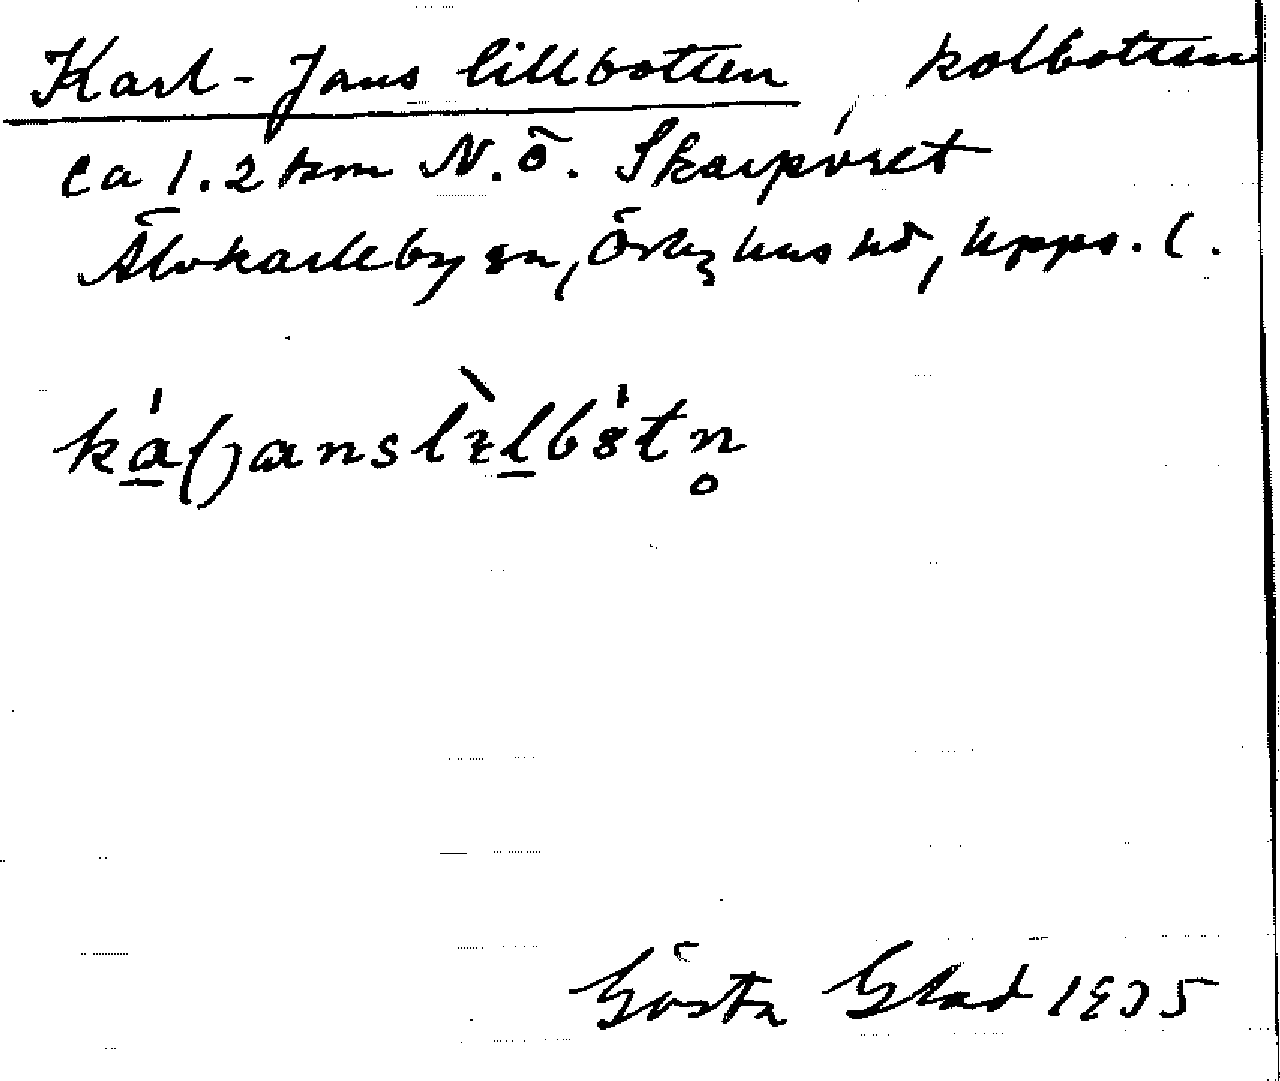 Karl-Jans lillbotten, kolbotten
ca 1.2 km N.ö. Skarpöret
Älvkarleby sn, Örbyhus hd, Upps. l.
Gösta Glad 1935